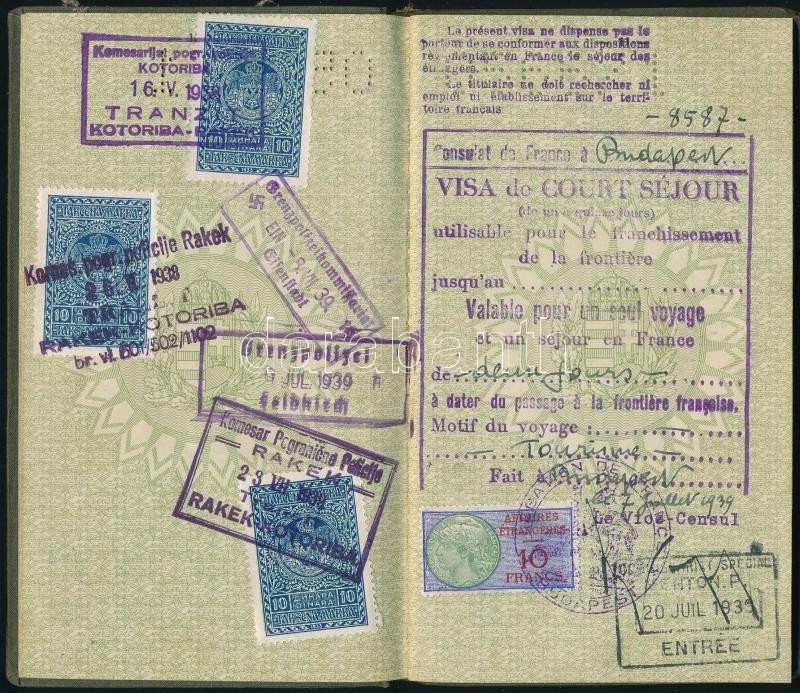 Komesarijat pogr.
KOTORIBA
16. V. 1938
TRANZIT
KOTORIBA-RAKEK
10 ДИНАРА DINARA 10
TAKSENA MARKA
TAKSENA MARKA
Komes. pogr. policije Rakek
1938
RAKEK-KOTORIBA
10
10
Grenzpolizeikommissariat
EIN
39
Grenzpolizei
9 JUL. 1939
Feldkirch
Komesar Pogranične Policije
RAKEK
23 VII 1939
RAKEK-KOTORIBA
10 ДИНАРА DINARA 10
Le présent visa ne dispense pas le
porteur de se conformer aux dispositions
réglementant en France le séjour des
étrangers.
Le titulaire ne doit rechercher ni
emploi ni établissement sur le terri-
toire français
-8587-
Consulat de France à Budapest
VISA de COURT SÉJOUR
(de un à quinze jours)
utilisable pour le franchissement
de la frontière
jusqu'au
Valable pour un seul voyage
et un séjour en France
de -deux jours-
à dater du passage à la frontière française.
Motif du voyage
-Tourisme-
Fait à Budapest
le 7 juillet 1939
Le Vice-Consul
AFFAIRES
ÉTRANGÈRES
10
FRANCS
BUDAPEST
SPECIAL
MENTON.P.
20 JUIL 1939
ENTRÉE
darabanth